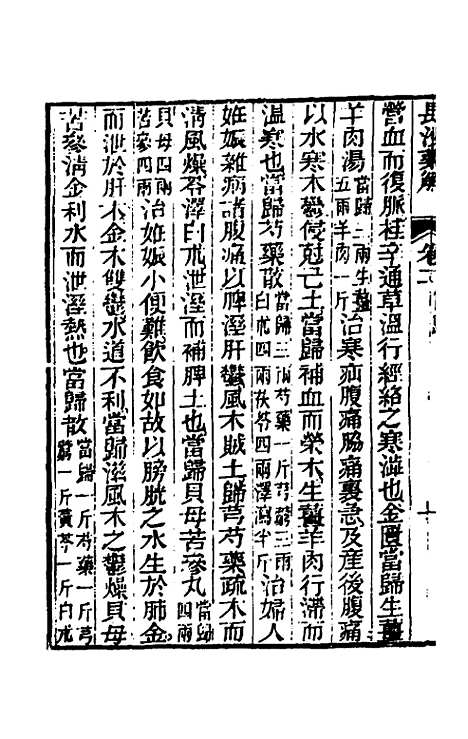 長沙藥解 卷二
營血而復脈桂辛通草溫行經絡之寒澁也金匱當歸生薑
羊肉湯當歸三兩生薑五兩羊肉一斤治寒疝腹痛脇痛裏急及産後腹痛
以水寒木鬱侵尅己土當歸補血而榮木生薑羊肉行滯而
溫寒也當歸芍藥散當歸三兩芍藥一斤芎藭三兩白朮四兩茯苓四兩澤瀉半斤治婦人
姙娠雜病諸腹痛以脾溼肝鬱風木賊土歸芎芍藥疏木而
清風燥苓澤白朮泄溼而補脾土也當歸貝母苦參丸當歸四兩
貝母四兩苦參四兩治姙娠小便難飮食如故以膀胱之水生於肺金
而泄於肝木金木雙鬱水道不利當歸滋風木之鬱燥貝母
苦參淸金利水而泄溼熱也當歸散當歸一斤芍藥一斤芎藭一斤黃芩一斤白朮